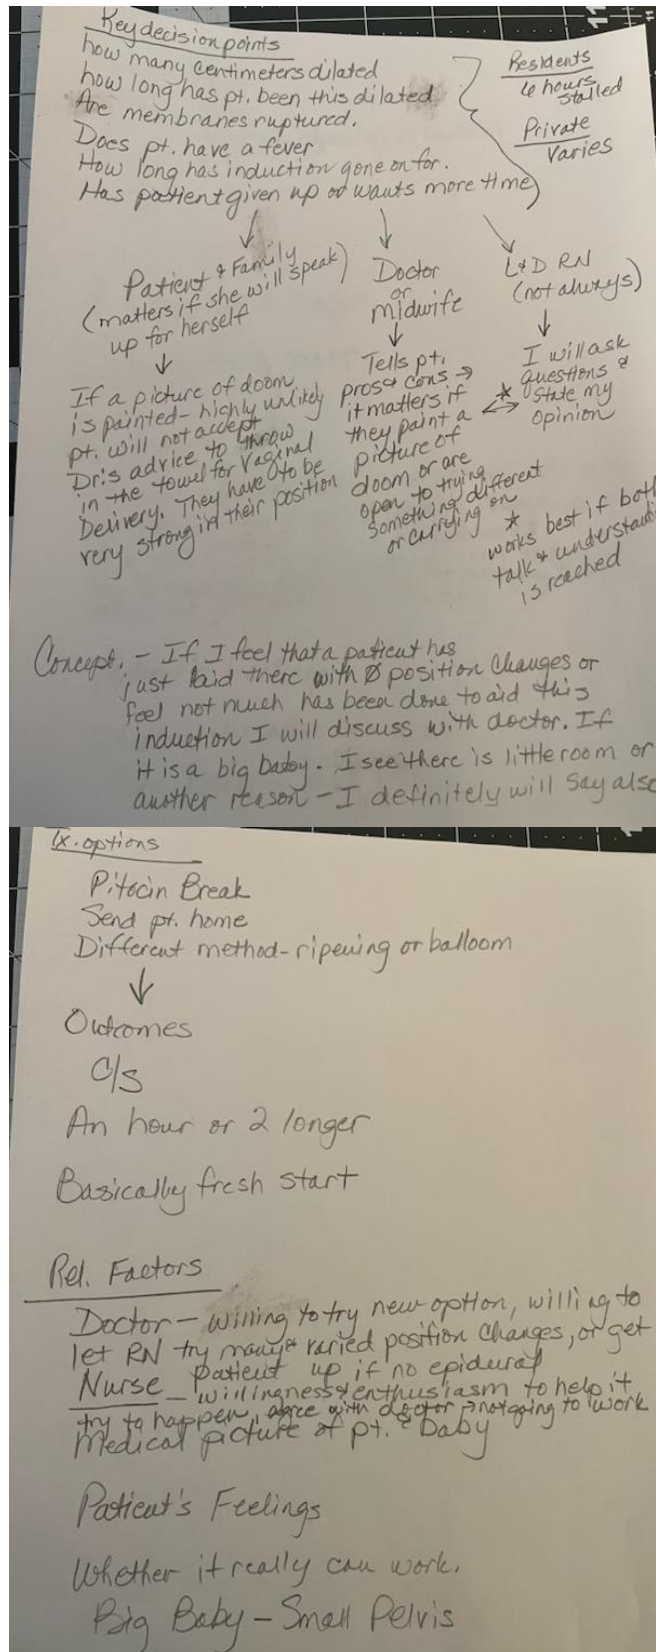 Key decision points
how many centimeters dilated
how long has pt. been this dilated
Are membranes ruptured.
Does pt. have a fever
How long has induction gone on for.
Has patient given up or wants more time
Residents
6 hours
stalled
Private
Varies
Patient & Family
(matters if she will speak)
up for herself
If a picture of doom
is painted - highly unlikely
pt. will not accept
Dr.'s advice to throw
in the towel for Vaginal
Delivery. They have to be
very strong in their position
Doctor
or
midwife
Tells pt.
pros & cons →
it matters if
they paint a
picture of
doom or are
open to trying
something different
or carrying on
L&D RN
(not always)
I will ask
questions &
state my
opinion
*
works best if both
talk & understandi
is reached
Concept. - If I feel that a patient has
just laid there with Ø position changes or
feel not much has been done to aid this
induction I will discuss with doctor. If
it is a big baby. I see there is little room or
another reason - I definitely will say also
Tx. options
Pitocin Break
Send pt. home
Different method - ripening or balloom
Outcomes
C/S
An hour or 2 longer
Basically fresh start
Rel. Factors
Doctor - willing to try new option, willing to
let RN try many & varied position changes, or get
patient up if no epidural
Nurse - willingness & enthusiasm to help it
try to happen, agree with doctor → not going to work
Medical picture of pt. & baby
Patient's Feelings
Whether it really can work.
Big Baby - Small Pelvis